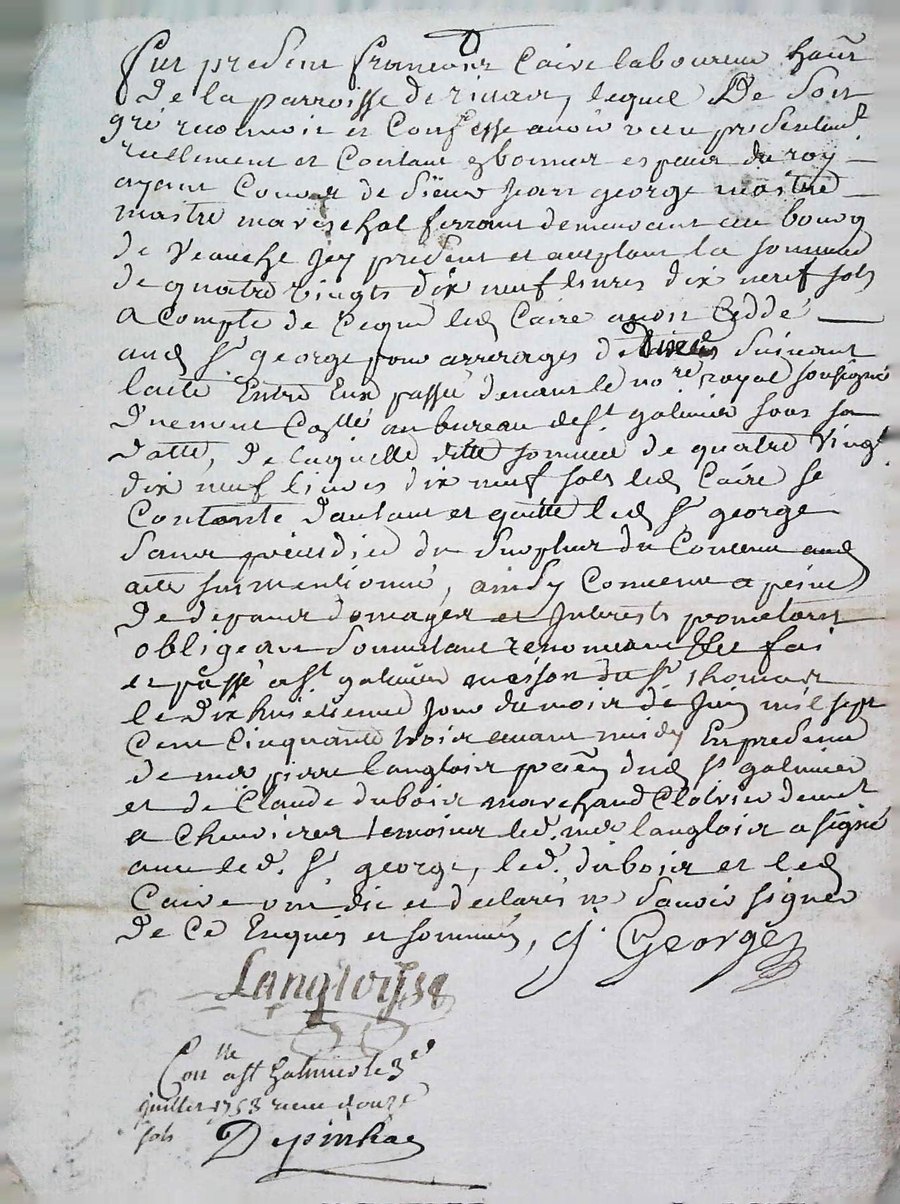 Fut present francois Caire laboureur habt
De la parroisse de rivas, lequel De Son
gré reconnoit et Confesse avoir reçu presentemt
reellement et Contant bonnes especes du roy
ayant Cours de Sieur Jean george maitre
maitre mareschal ferrant demeurant au bourg
de Veauche Jcy present et acceptant la somme
de quatre vingts dix neuf livres dix neuf sols
a Compte de Ceque led Caire avoit Ceddé
aud sr george pour arrerages de Suivant
lacte Entre Eux passé devant le nore royal soussigné
Duement Collé au bureau de st galmier sous sa
datte, de laquelle ditte somme de quatre Vingt
dix neuf livres dix neuf sols led Caire se
Contante dautant et quitte led sr george
Sans préjudice du Surplus du Contenu aud
acte surmentionné, ainsy Convenu a peine
de depens domages et Interests prometant
obligeant Soumetant renonceant fait
et passé a st galmier maison du sr thomas
le dix huictieme Jour du mois de Juin mil sept
Cent Cinquante trois avant midy En presence
de me pierre langlois dud st galmier
et de Claude dubois marchand Cloutier demt
a Chevrieres temoins led. me langlois a signé
avec led. sr george, led. dubois et led
Caire ont dit et declarés ne Savoir signer
de Ce Enquis et sommés, J. George
Langloys
Conlle a st Galmier le 3e
juillet 1753 recu douze
sols Depinhac